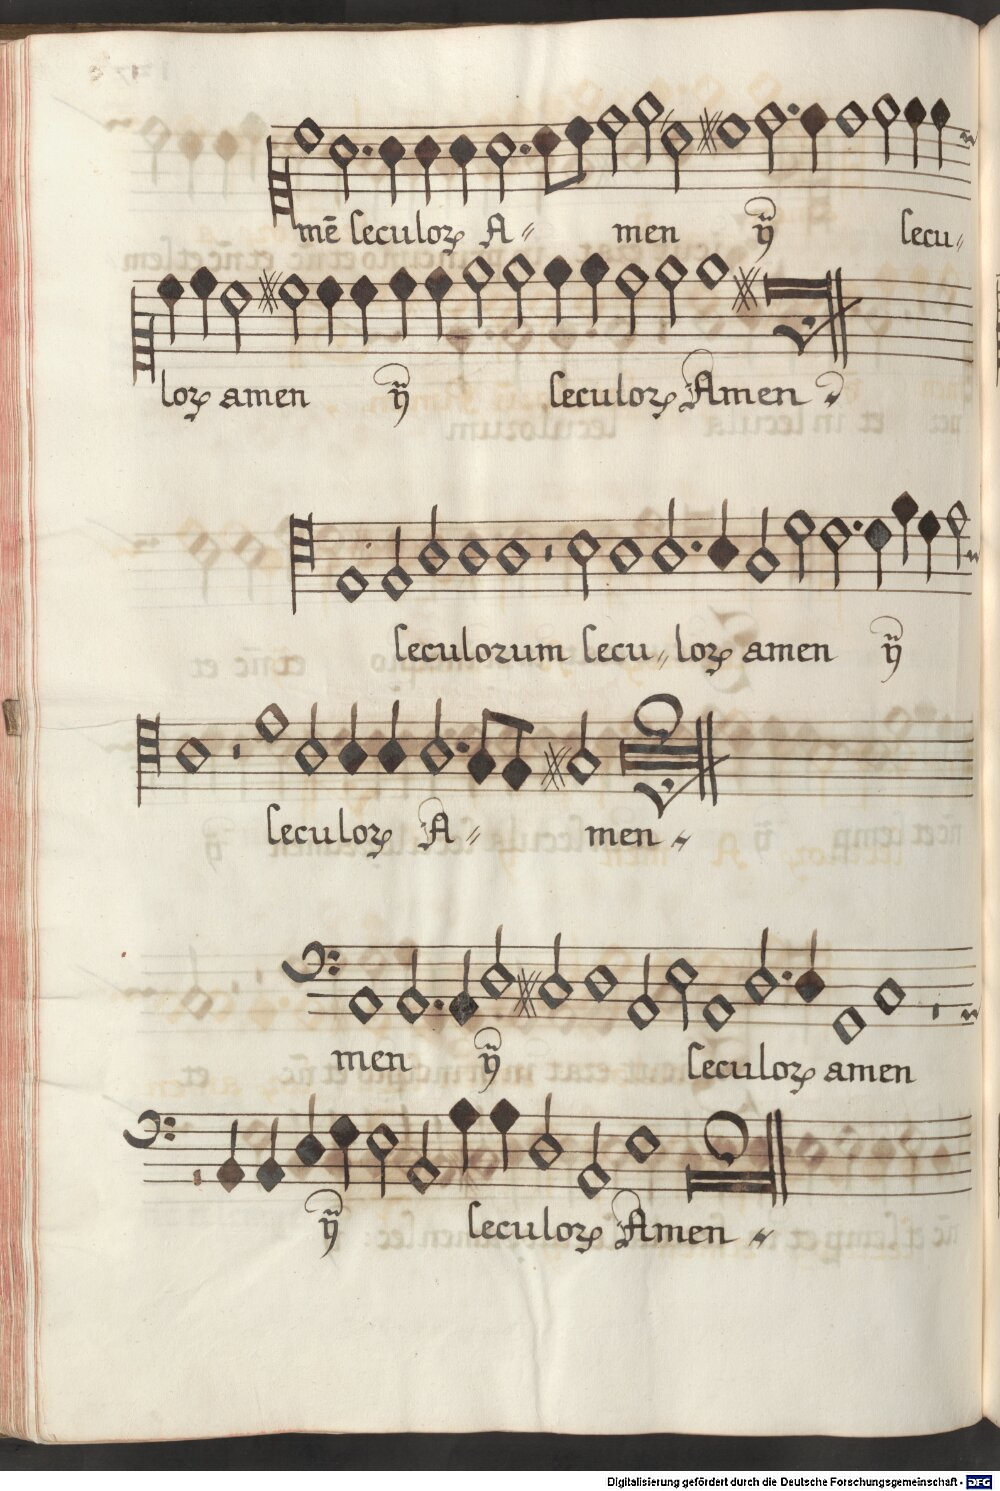 mē seculoꝝ A- men ÿ secu-
loꝝ amen ÿ seculoꝝ Amen
seculorum secu-loꝝ amen ÿ
seculoꝝ A- men
men ÿ seculoꝝ amen
ÿ seculoꝝ Amen
Digitalisierung gefördert durch die Deutsche Forschungsgemeinschaft - DFG